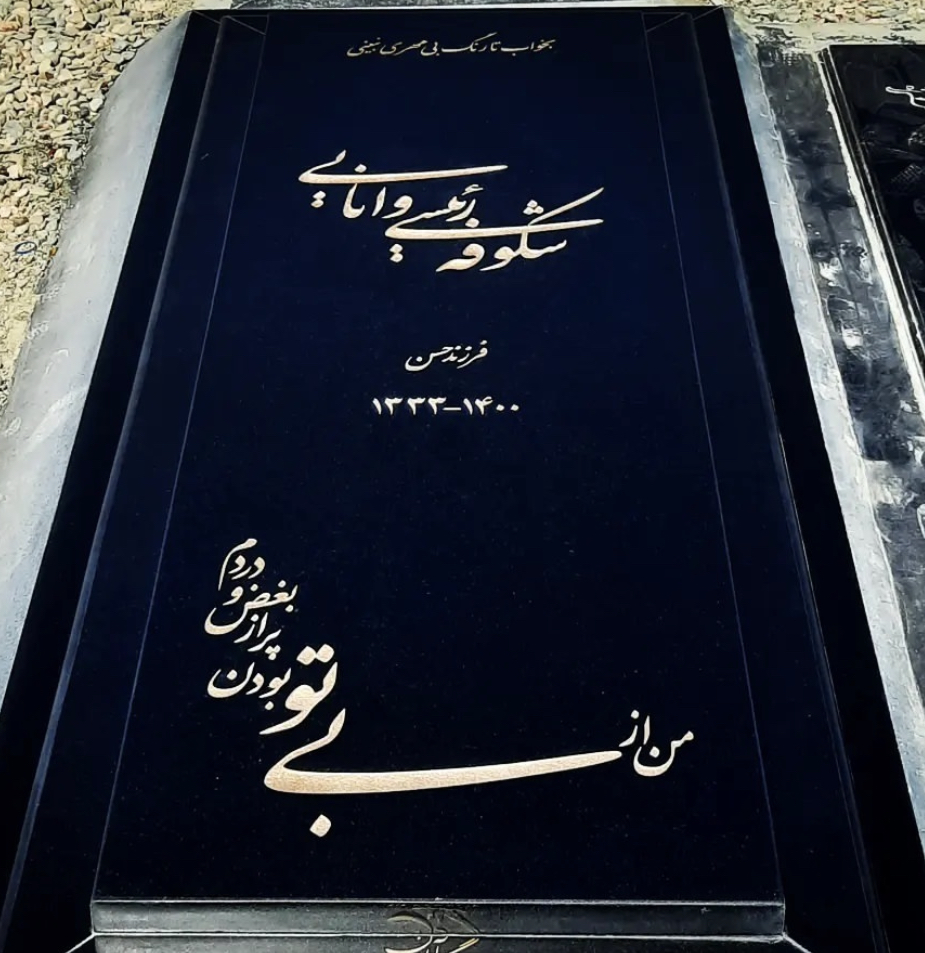 بخواب تا رنگ بی مهری نبینی
شکوفه رئیسی وانانی
فرزند حسن
۱۳۳۳-۱۴۰۰
من از بی تو بودن
پر از بغض و دردم